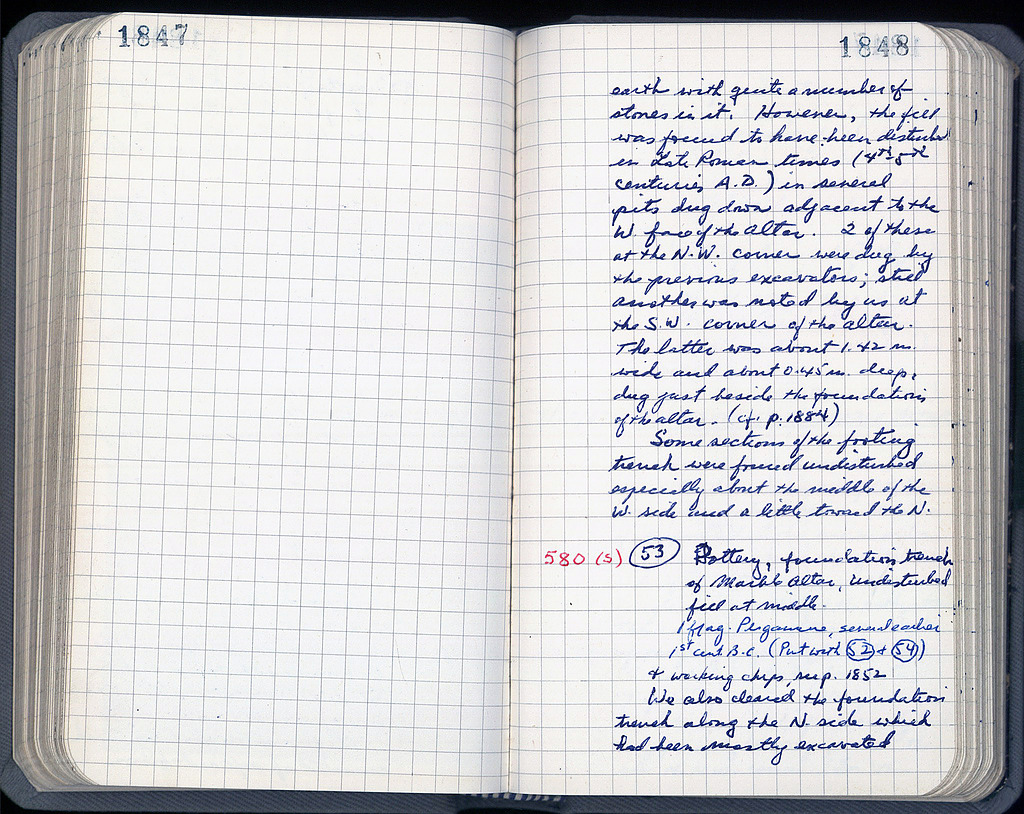 1847
1848
earth with quite a number of
stones in it. However, the fill
was found to have been disturbed
in Late Roman times (4th-5th
centuries A.D.) in several
pits dug down adjacent to the
W. face of the altar. 2 of these
at the N.W. corner were dug by
the previous excavators; still
another was noted by us at
the S.W. corner of the altar.
The latter was about 1.42 m.
wide and about 0.45 m. deep,
dug just beside the foundations
of the altar. (cf. p. 1884)
Some sections of the footing
trench were found undisturbed
especially about the middle of the
W. side and a little toward the N.
580 (s) 53 Pottery, foundation trench
of Marble Altar, undisturbed
fill at middle.
1 frag. Pergamene, several earlier
1st cent. B.C. (Put with 52 + 54)
+ working chips, p. 1852
We also cleared the foundation
trench along the N. side which
had been mostly excavated